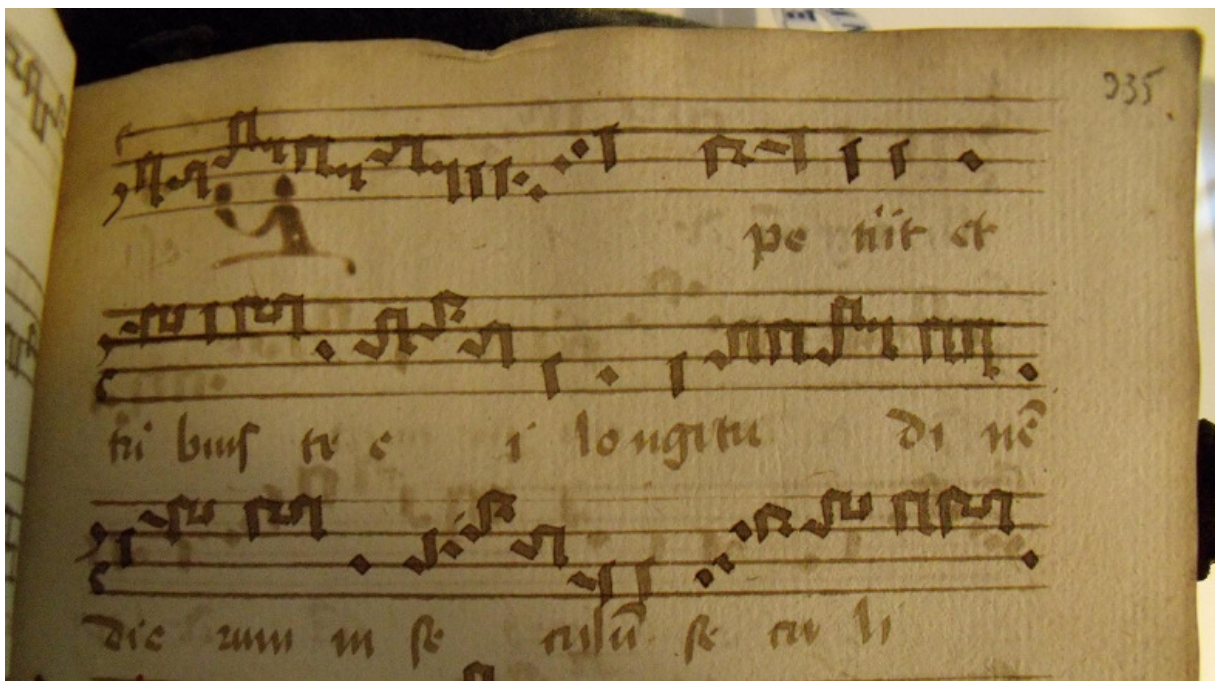 335
pe tiit et
tri buis ti e i longitu di nē
die rum in se culū se cu li